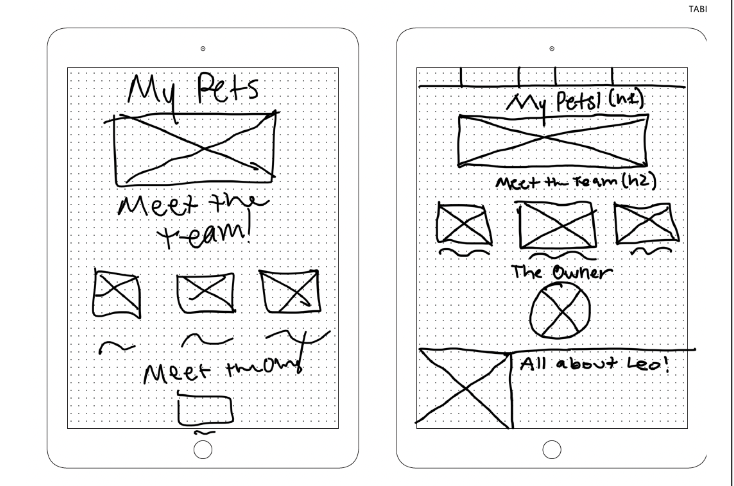 TABL
My Pets
Meet the
team!
Meet the
My Pets! (h1)
Meet the Team (h2)
The Owner
All about Leo!